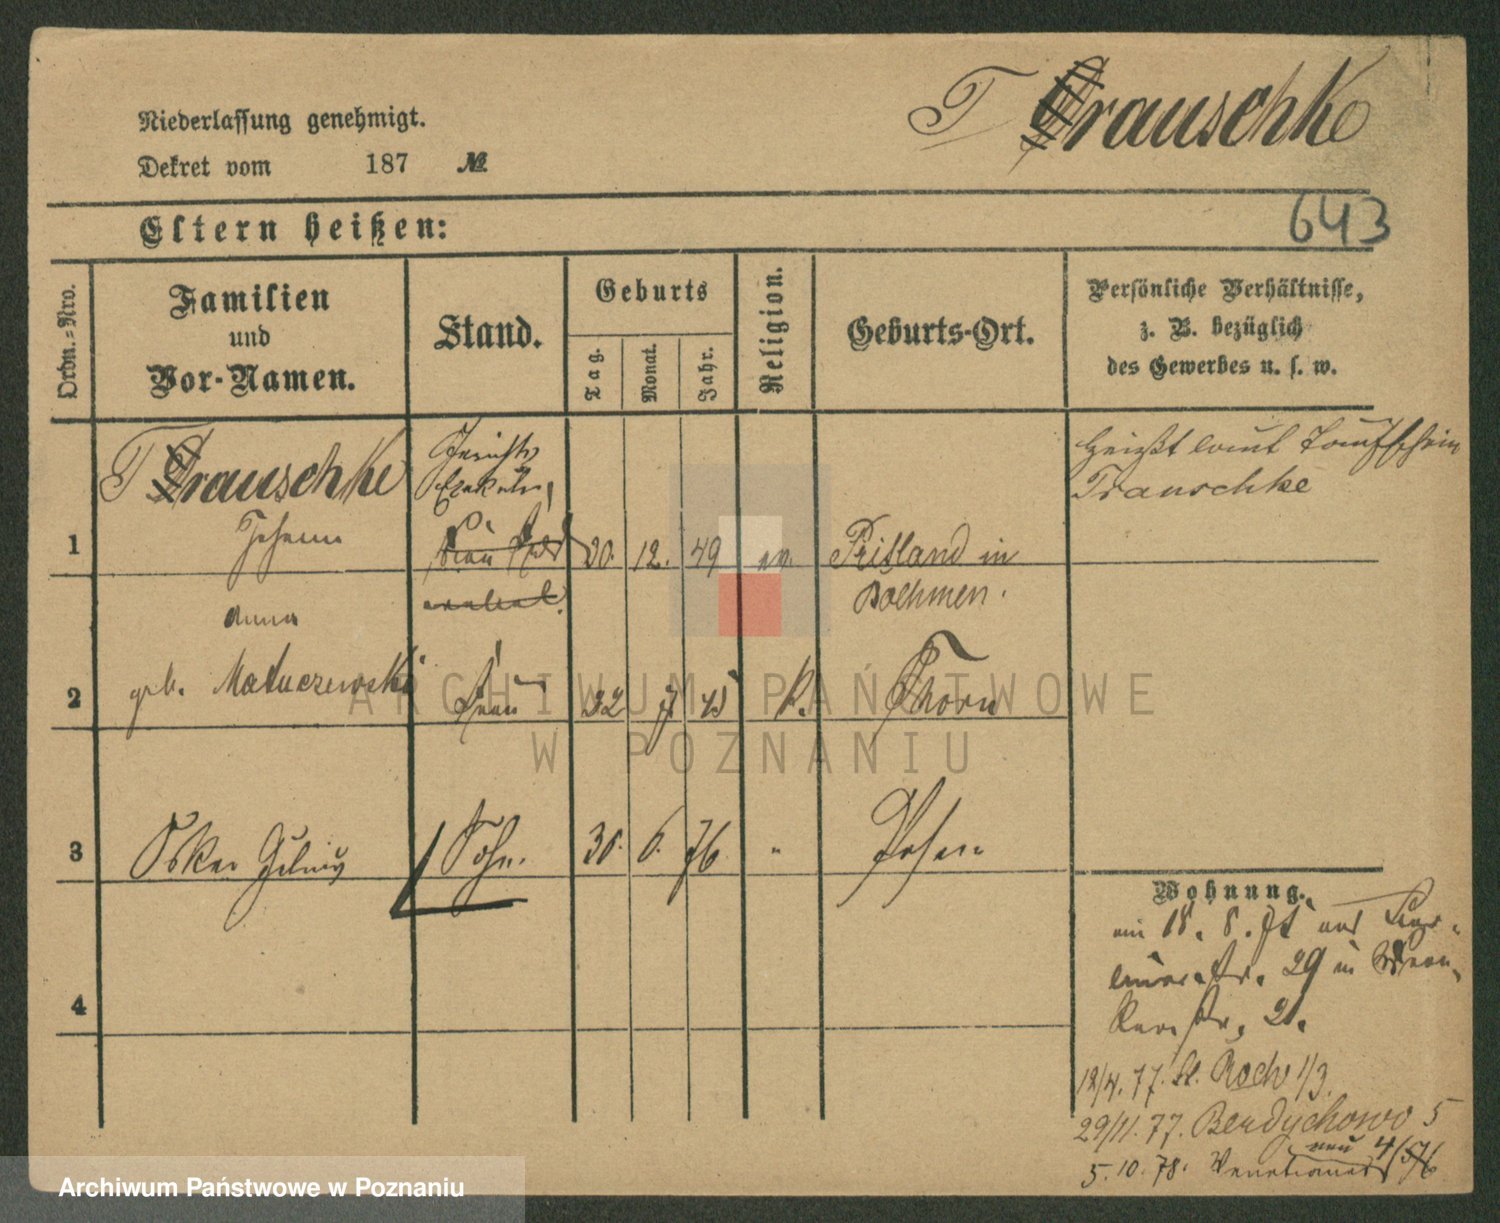 T Drauschke
Niederlassung genehmigt.
Dekret vom 187 №
643
Eltern heißen:
Ordn.-Nro.
Familien
und
Vor-Namen.
Stand.
Geburts
Tag.
Monat.
Jahr.
Religion.
Geburts-Ort.
Persönliche Verhältnisse,
z. B. bezüglich
des Gewerbes u. s. w.
T Drauschke
Gerichts
Exekutor
heißt laut Taufschein
Trauschke
1
Johann
20. 12. 49 ev. Prisland in
Boehmen.
Anna
2 geb. Matuczewski Frau 22 7 45 k. Thorn
3 Oskar Julius Sohn. 30. 6. 76 " Posen
4
Wohnung.
18. 8. 29 in
21.
12/4. 77. St. Roch 1/3.
29/11. 77. Berdychowo 5
neu 4/5/6
5. 10. 78. Venetianer
ARCHIWUM PAŃSTWOWE
W POZNANIU
Archiwum Państwowe w Poznaniu